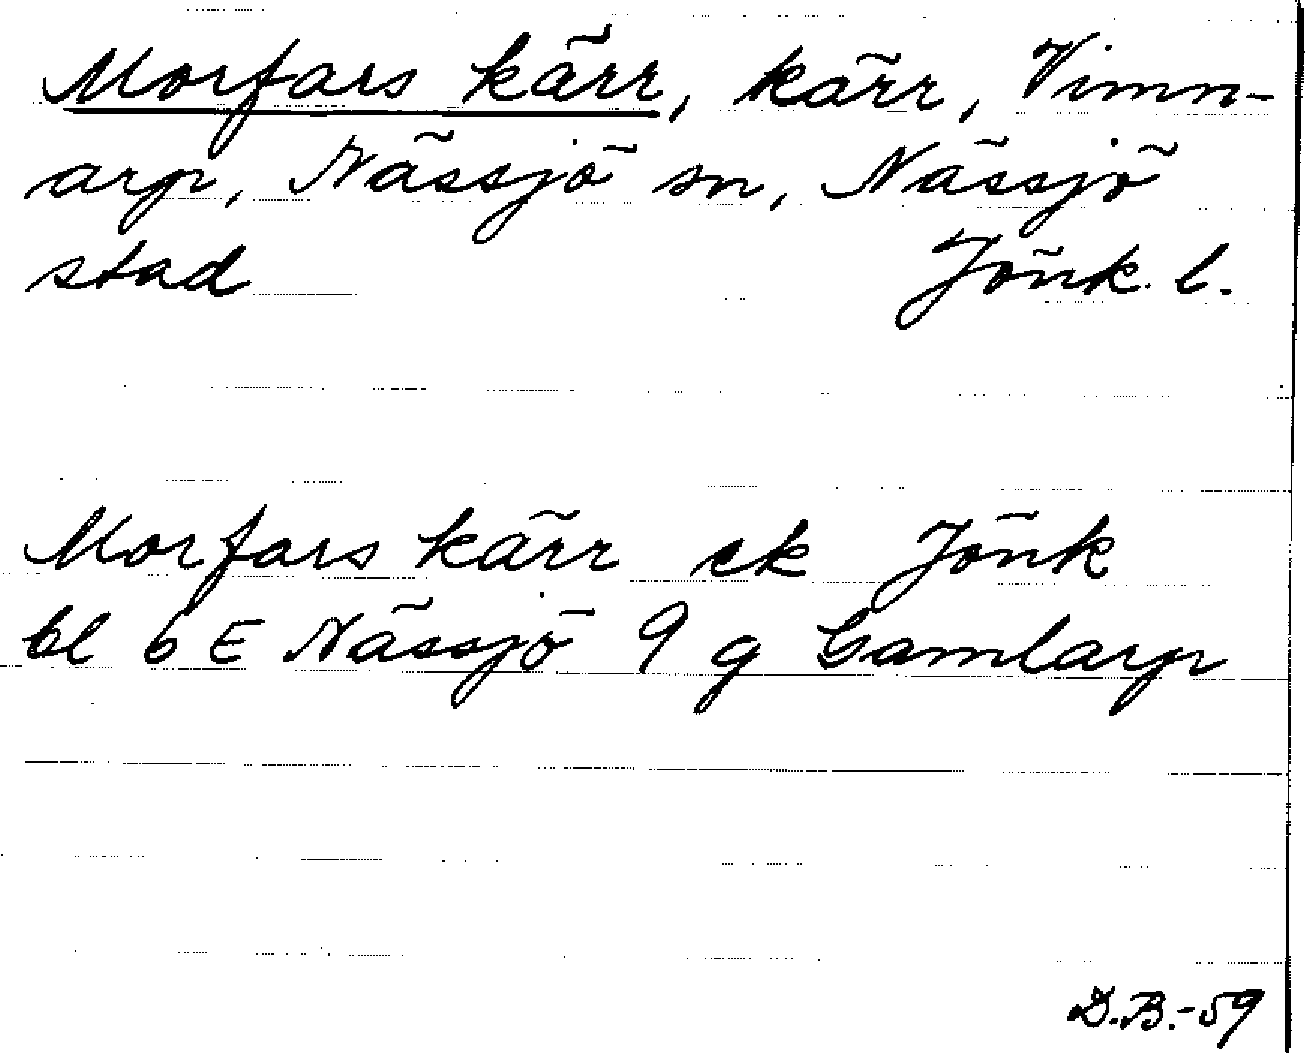 Morfars kärr, kärr, Vimn-
arp, Nässjö sn, Nässjö
stad Jönk. l.
Morfars kärr ek Jönk
bl 6 E Nässjö 9 g Gamlarp
D.B.-59